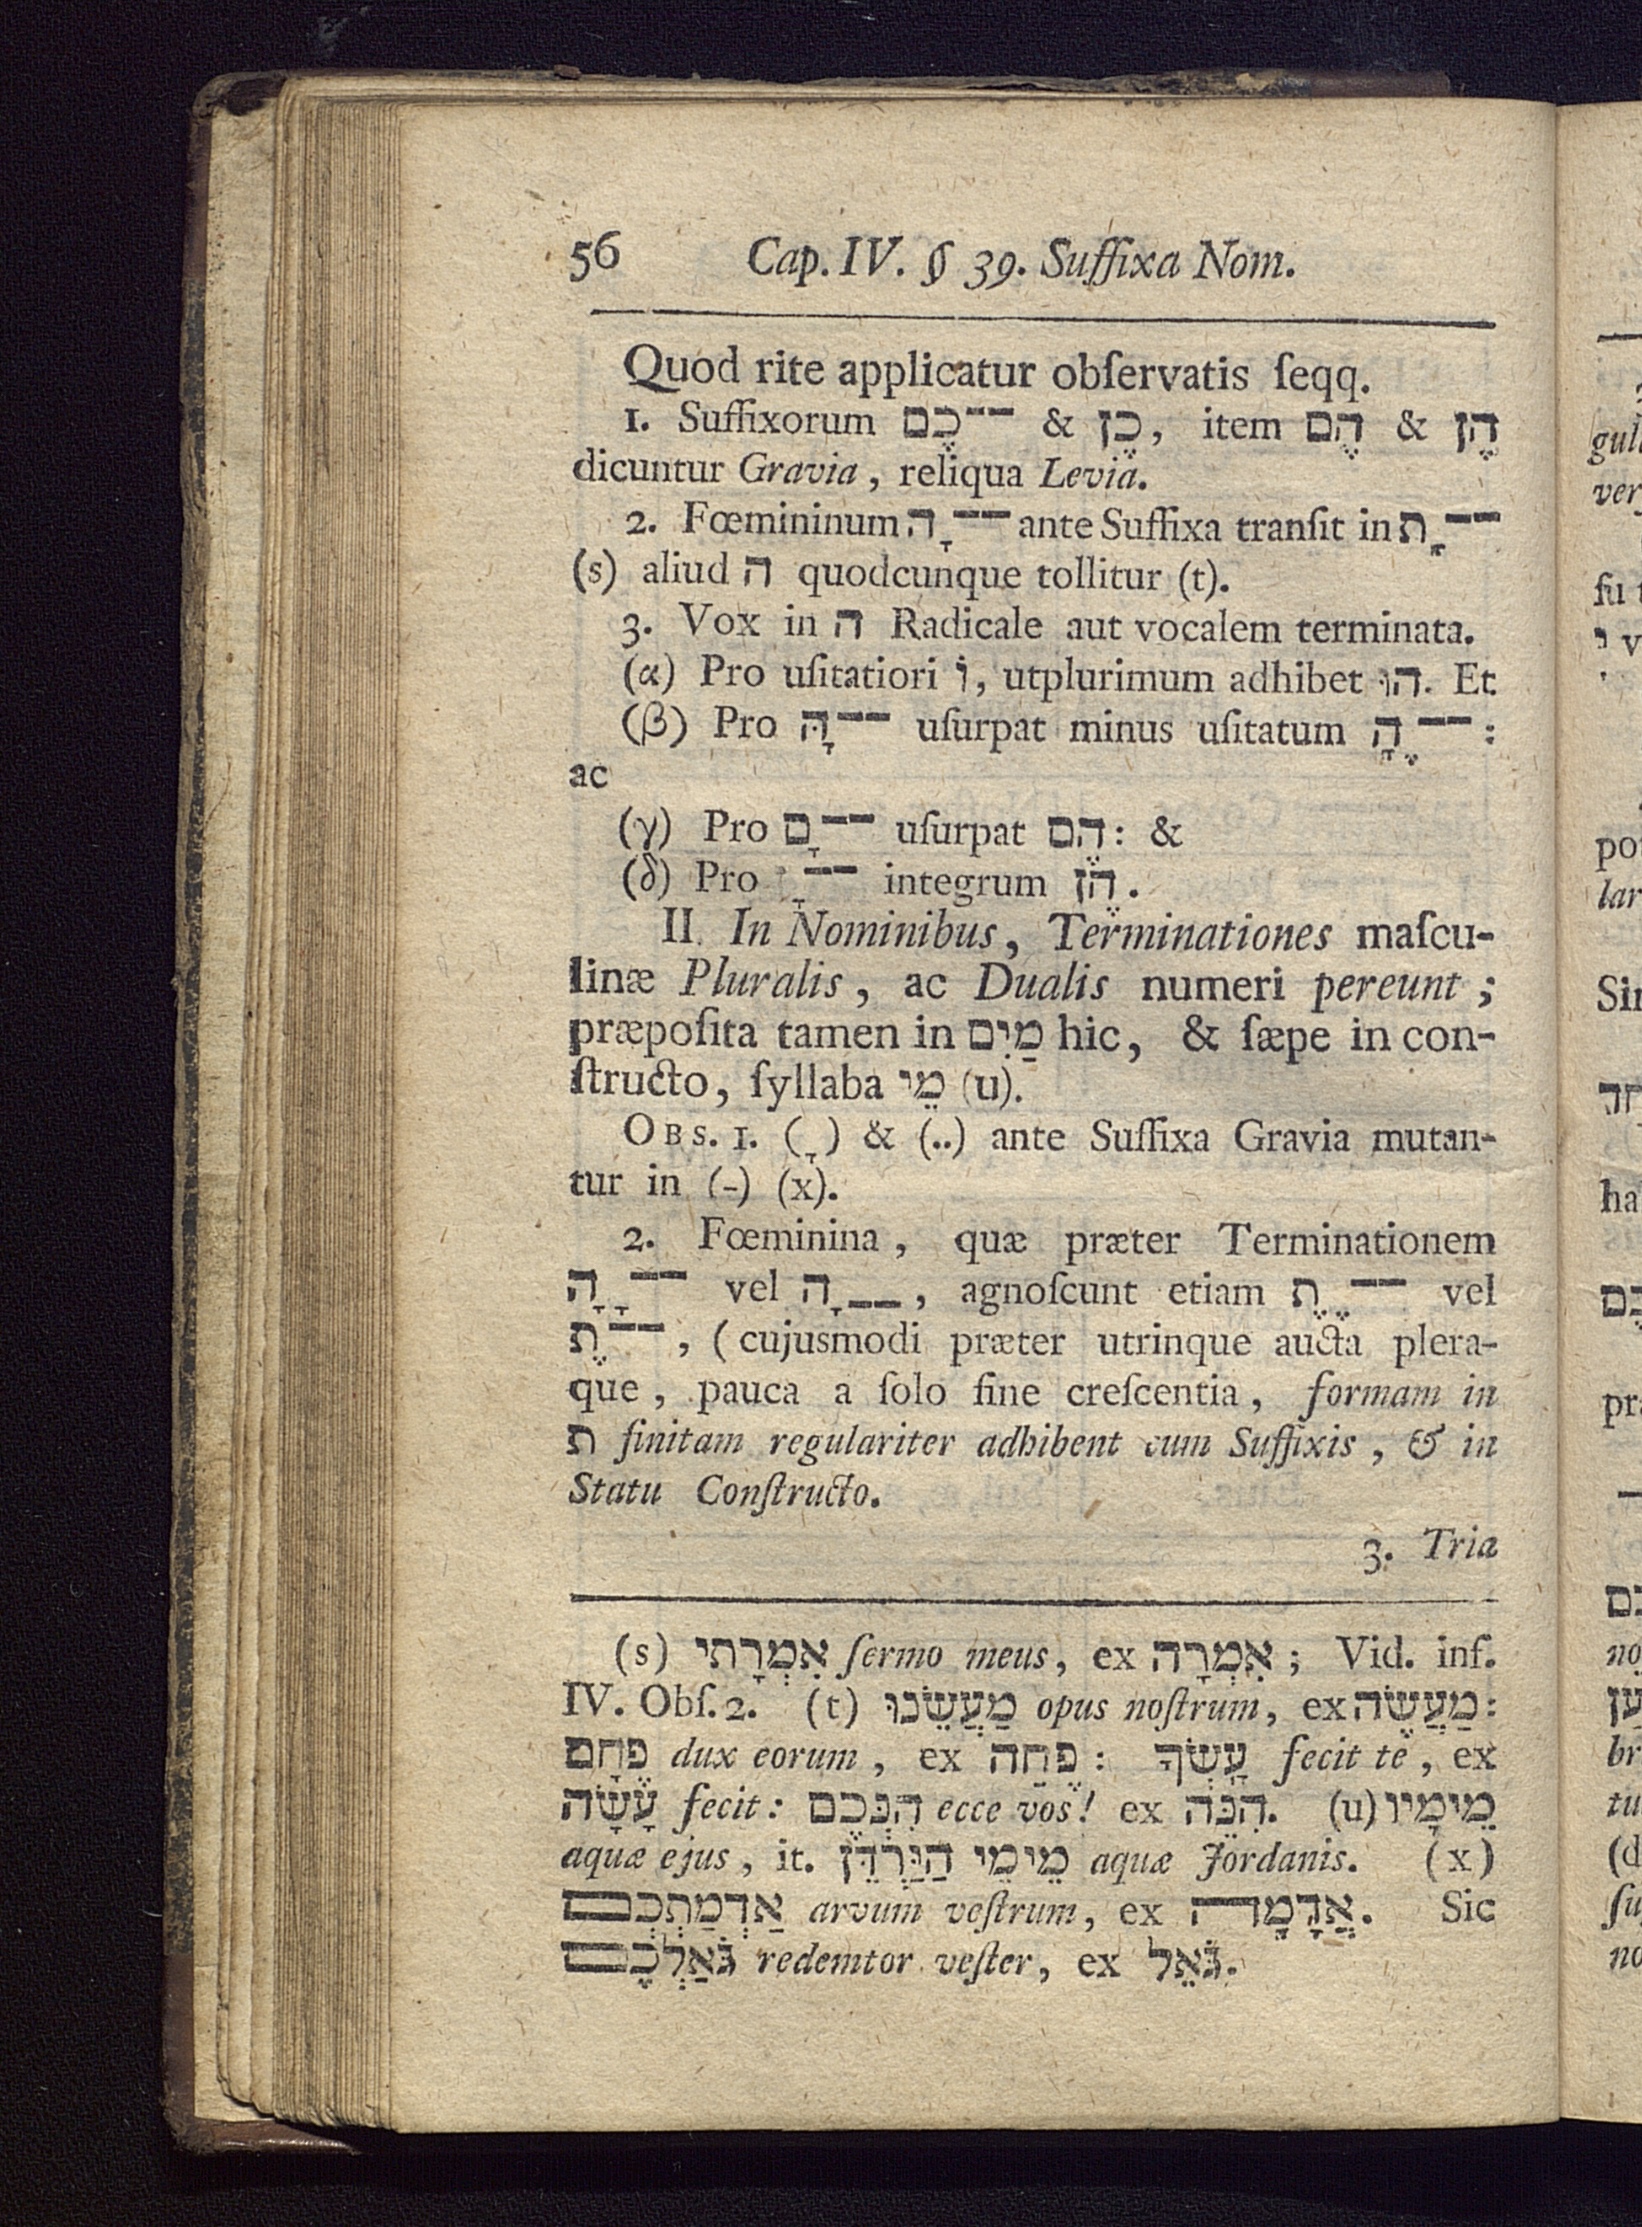 56 Cap. IV. § 39. Suffixa Nom.
Quod rite applicatur obſervatis ſeqq.
1. Suffixorum ––כֶם & כֶן, item הֶם & הֶן
dicuntur Gravia, reliqua Levia.
2. Fœmininum ––ָה ante Suffixa tranſit in ––ָת
(s) aliud ה quodcunque tollitur (t).
3. Vox in ה Radicale aut vocalem terminata.
(α) Pro uſitatiori וֹ, utplurimum adhibet הוּ. Et
(β) Pro ––ָהּ uſurpat minus uſitatum ––ֶהָ :
ac
(γ) Pro ––ָם uſurpat הֶם : &
(δ) Pro ––ָ integrum הֶן.
II. In Nominibus, Terminationes maſcu-
linæ Pluralis, ac Dualis numeri pereunt;
præpoſita tamen in מַיִם hic, & ſæpe in con-
ſtructo, ſyllaba מֵי (u).
OBS. 1. (ָ) & (..) ante Suffixa Gravia mutan-
tur in (-) (x).
2. Fœminina, quæ præter Terminationem
––ָָה vel ––ָה, agnoſcunt etiam ––ֶֶת vel
––ֶת, (cujusmodi præter utrinque aucta plera-
que, pauca a ſolo fine creſcentia, formam in
ת finitam regulariter adhibent cum Suffixis, & in
Statu Conſtructo.
3. Tria
(s) אִמְרָתִי ſermo meus, ex אִמְרָה; Vid. inf.
IV. Obſ. 2. (t) מַעֲשֵׂנוּ opus noſtrum, ex מַעֲשֶׂה:
פֶחָם dux eorum, ex פֶחַה: עָשְׂךָ fecit te, ex
עָשָׂה fecit: הִנְּכֶם ecce vos! ex הִנֵּה. (u) מֵימָיו
aquæ ejus, it. מֵימֵי הַיַּרְדֵּן aquæ Jordanis. (x)
אַדְמַתְכֶם arvum veſtrum, ex אֲדָמָה. Sic
גֹּאַלְכֶם redemtor veſter, ex גֹּאֵל.